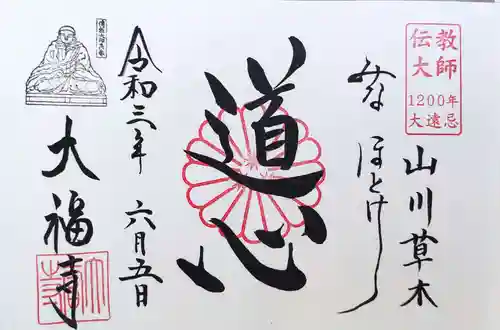 伝教
大師
1200年
大遠忌
山川草木
みな
ほとけ
道心
令和三年 六月五日
大福寺